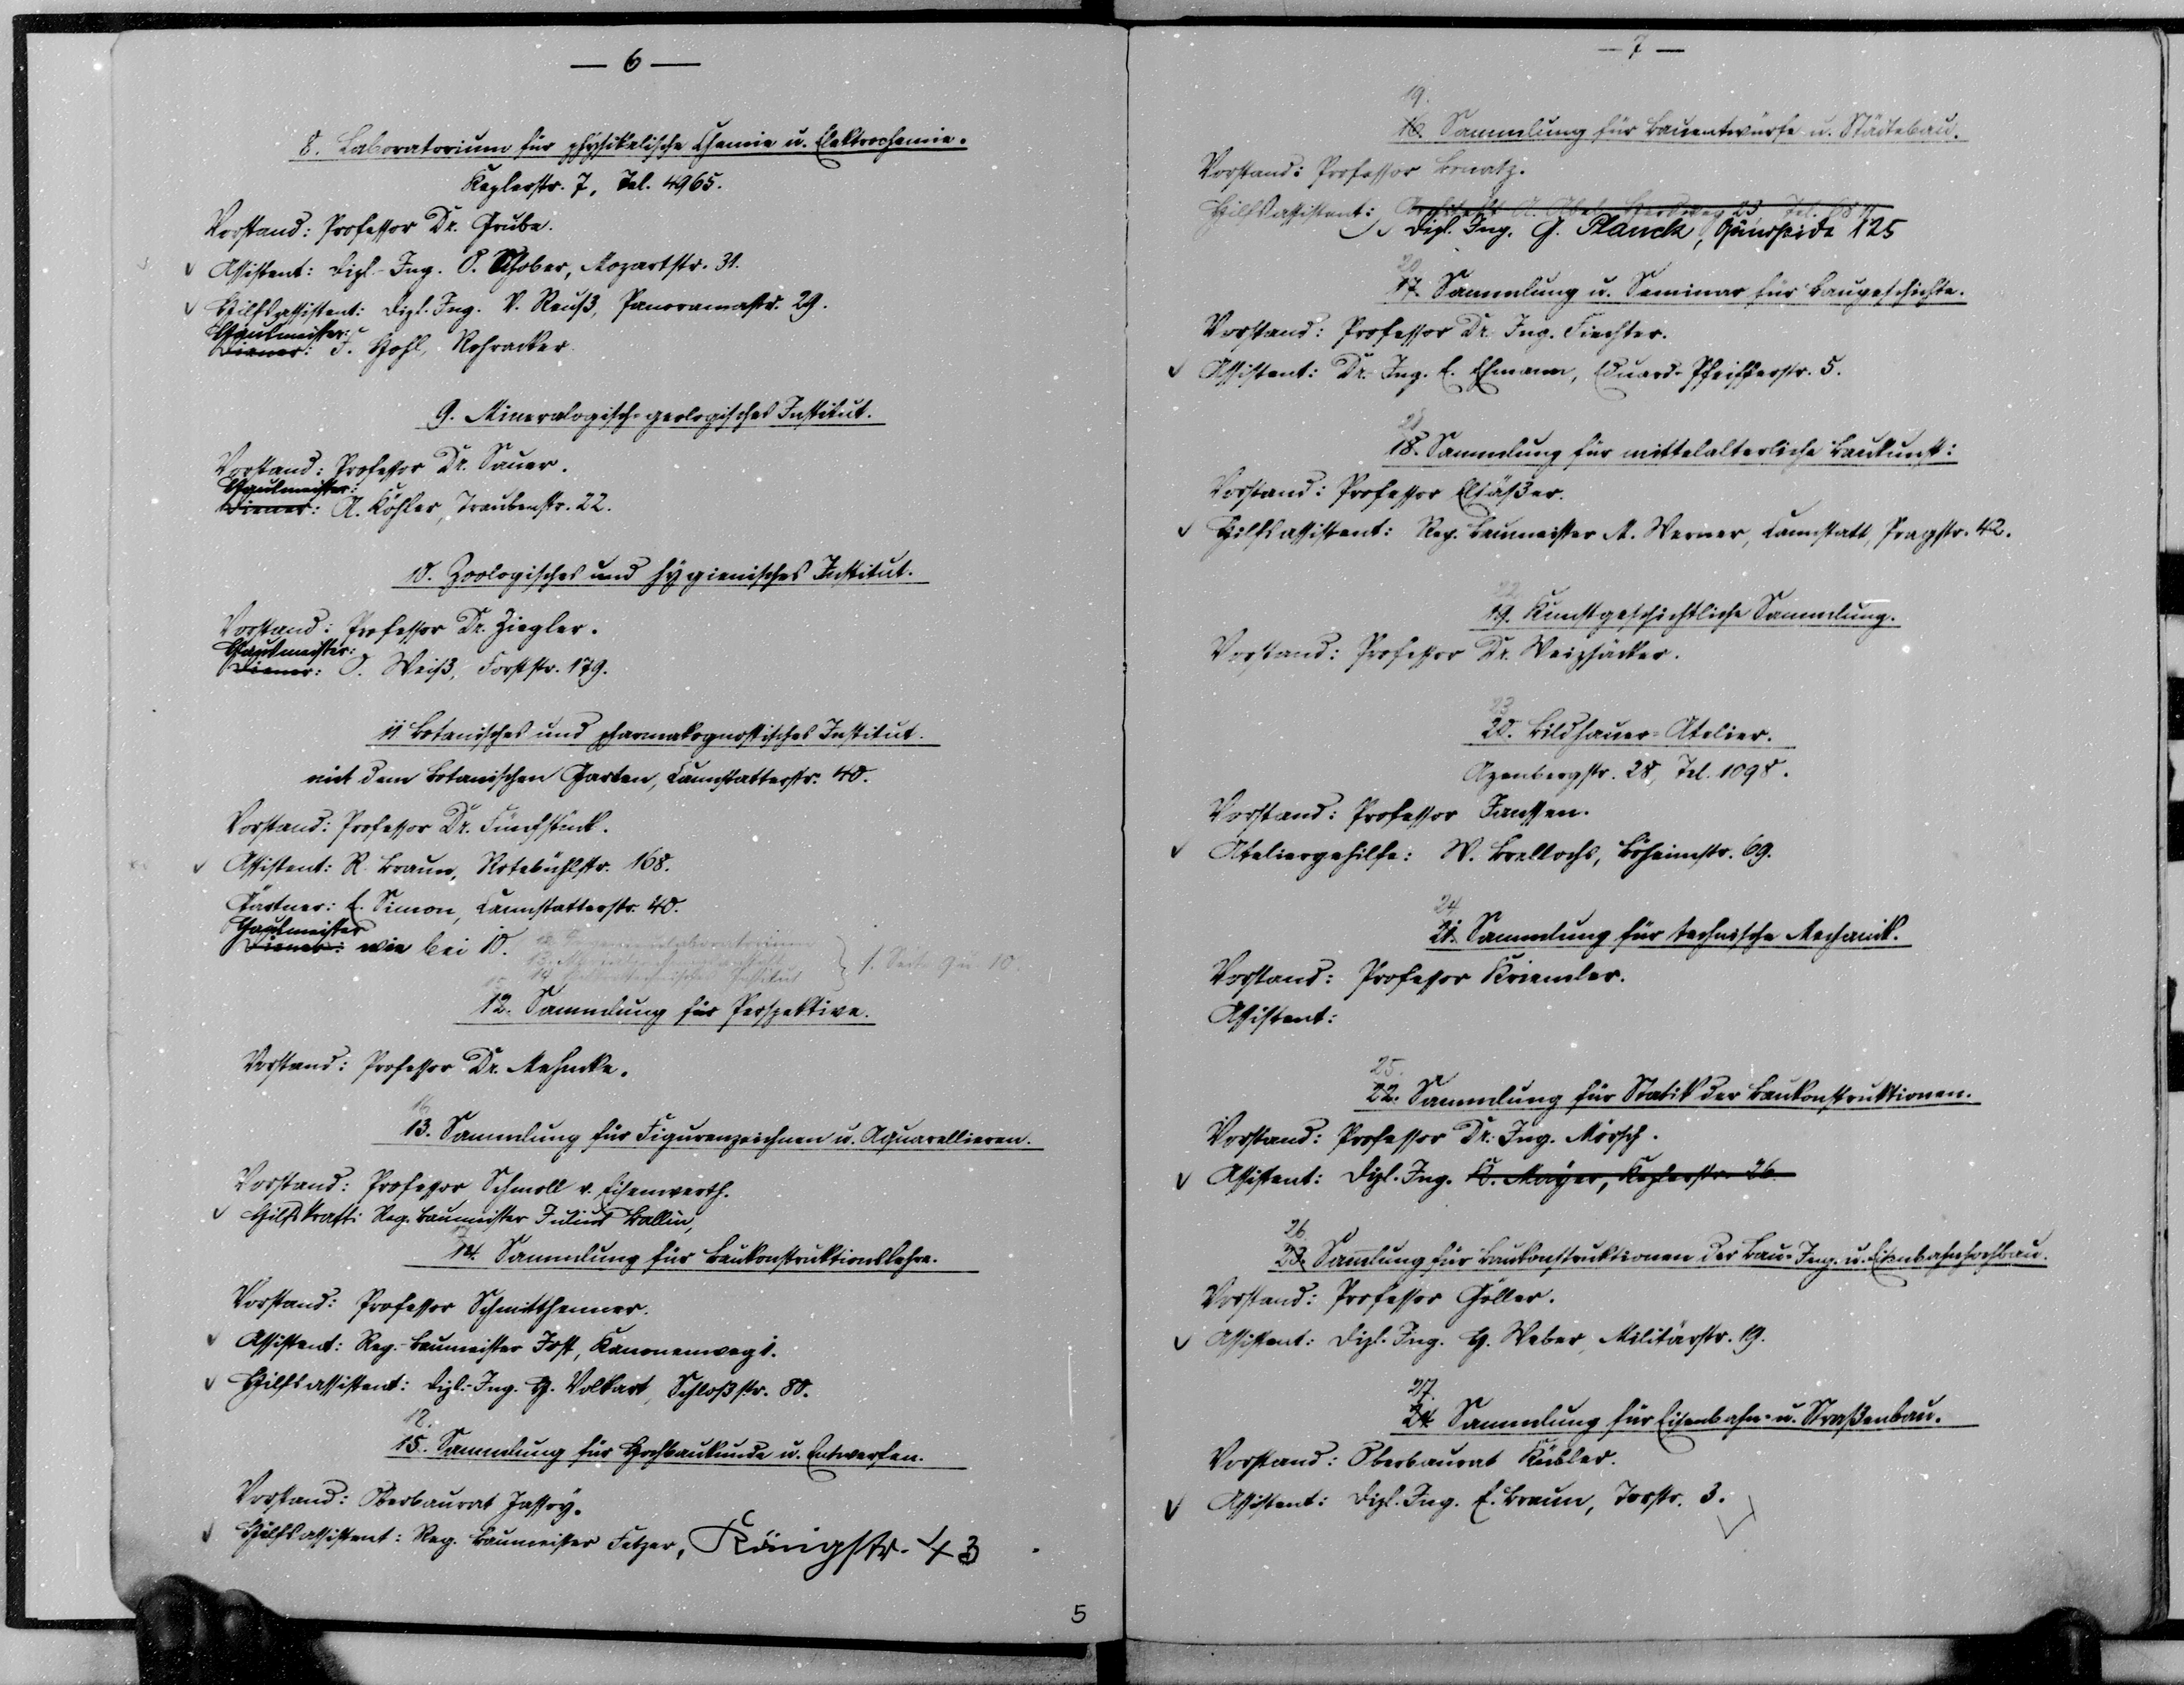 — 6 —
8. Laboratorium für physikalische Chemie u. Elektrochemie.
Keplerstr. 7, Tel. 4965.
Vorstand: Professor Dr. Grube.
Assistent: Dipl.-Ing. O. Schober, Mozartstr. 31.
Hilfsassistent: Dipl.-Ing. V. Reuß, Panoramastr. 29.
Hausmeister:
Diener: F. Hohl, Rohracker
9. Mineralogisch-geologisches Institut.
Vorstand: Professor Dr. Sauer.
Hausmeister:
Diener: A. Köhler, Traubenstr. 22.
10. Zoologisches und hygienisches Institut.
Vorstand: Professor Dr. Ziegler.
Hausmeister:
Diener: O. Weiß, Forststr. 179.
11 Botanisches und pharmakognostisches Institut.
mit dem Botanischen Garten, Cannstatterstr. 40.
Vorstand: Professor Dr. Fünfstück.
Assistent: R. Braun, Rotebühlstr. 168.
Gärtner: E. Simon, Cannstatterstr. 40.
Hausmeister
Diener: wie bei 10.
12. Ingenieurlaboratorium
13. Materialprüfungsanstalt
14 Elektrotechnisches Institut
s. Seite 9 u. 10.
15.
12. Sammlung für Perspektive.
Vorstand: Professor Dr. Mehmke.
16
13. Sammlung für Figurenzeichnen u. Aquarellieren.
Vorstand: Professor Schmoll v. Eisenwerth.
Hilfskraft: Reg. Baumeister Julius Ballin,
17
14. Sammlung für Baukonstruktionslehre.
Vorstand: Professor Schmitthenner.
Assistent: Reg.-Baumeister Jost, Kanonenweg 1.
Hilfsassistent: Dipl.-Ing. G. Volkart, Schloßstr. 80.
18.
15. Sammlung für Hochbaukunde u. Entwerfen.
Vorstand: Oberbaurat Jassoy.
Hilfsassistent: Reg. Baumeister Fetzer, Königstr. 43
5
— 7 —
19.
16. Sammlung für Bauentwürfe u. Städtebau.
Vorstand: Professor Bonatz.
Hilfsassistent: Architekt A. Abel, Herdweg 23, Tel.
Dipl. Ing. G. Planck, Gänsheide 125
20
17. Sammlung u. Seminar für Baugeschichte.
Vorstand: Professor Dr. Ing. Fiechter.
Assistent: Dr. Ing. E. Ehmann, Eduard-Pfeifferstr. 5.
21
18. Sammlung für mittelalterliche Baukunst:
Vorstand: Professor Elsäßer.
Hilfsassistent: Reg. Baumeister M. Werner, Cannstatt, Pragstr. 42.
22
19. Kunstgeschichtliche Sammlung.
Vorstand: Professor Dr. Weizsäcker.
23
20. Bildhauer-Atelier.
Azenbergstr. 28, Tel. 1098.
Vorstand: Professor Janssen.
Ateliergehilfe: W. Brellochs, Böheimstr. 69.
24
21. Sammlung für technische Mechanik.
Vorstand: Professor Kriemler.
Assistent:
25.
22. Sammlung für Statik der Baukonstruktionen.
Vorstand: Professor Dr. Ing. Mörsch.
Assistent: Dipl.-Ing. K. Mayer, Keplerstr. 26.
26
23. Sammlung für Baukonstruktionen der Bau-Ing. u. Eisenbahnhochbau.
Vorstand: Professor Göller.
Assistent: Dipl. Ing. H. Weber, Militärstr. 19.
27.
24. Sammlung für Eisenbahn- u. Straßenbau.
Vorstand: Oberbaurat Kübler.
Assistent: Dipl. Ing. E. Braun, Torstr. 3.